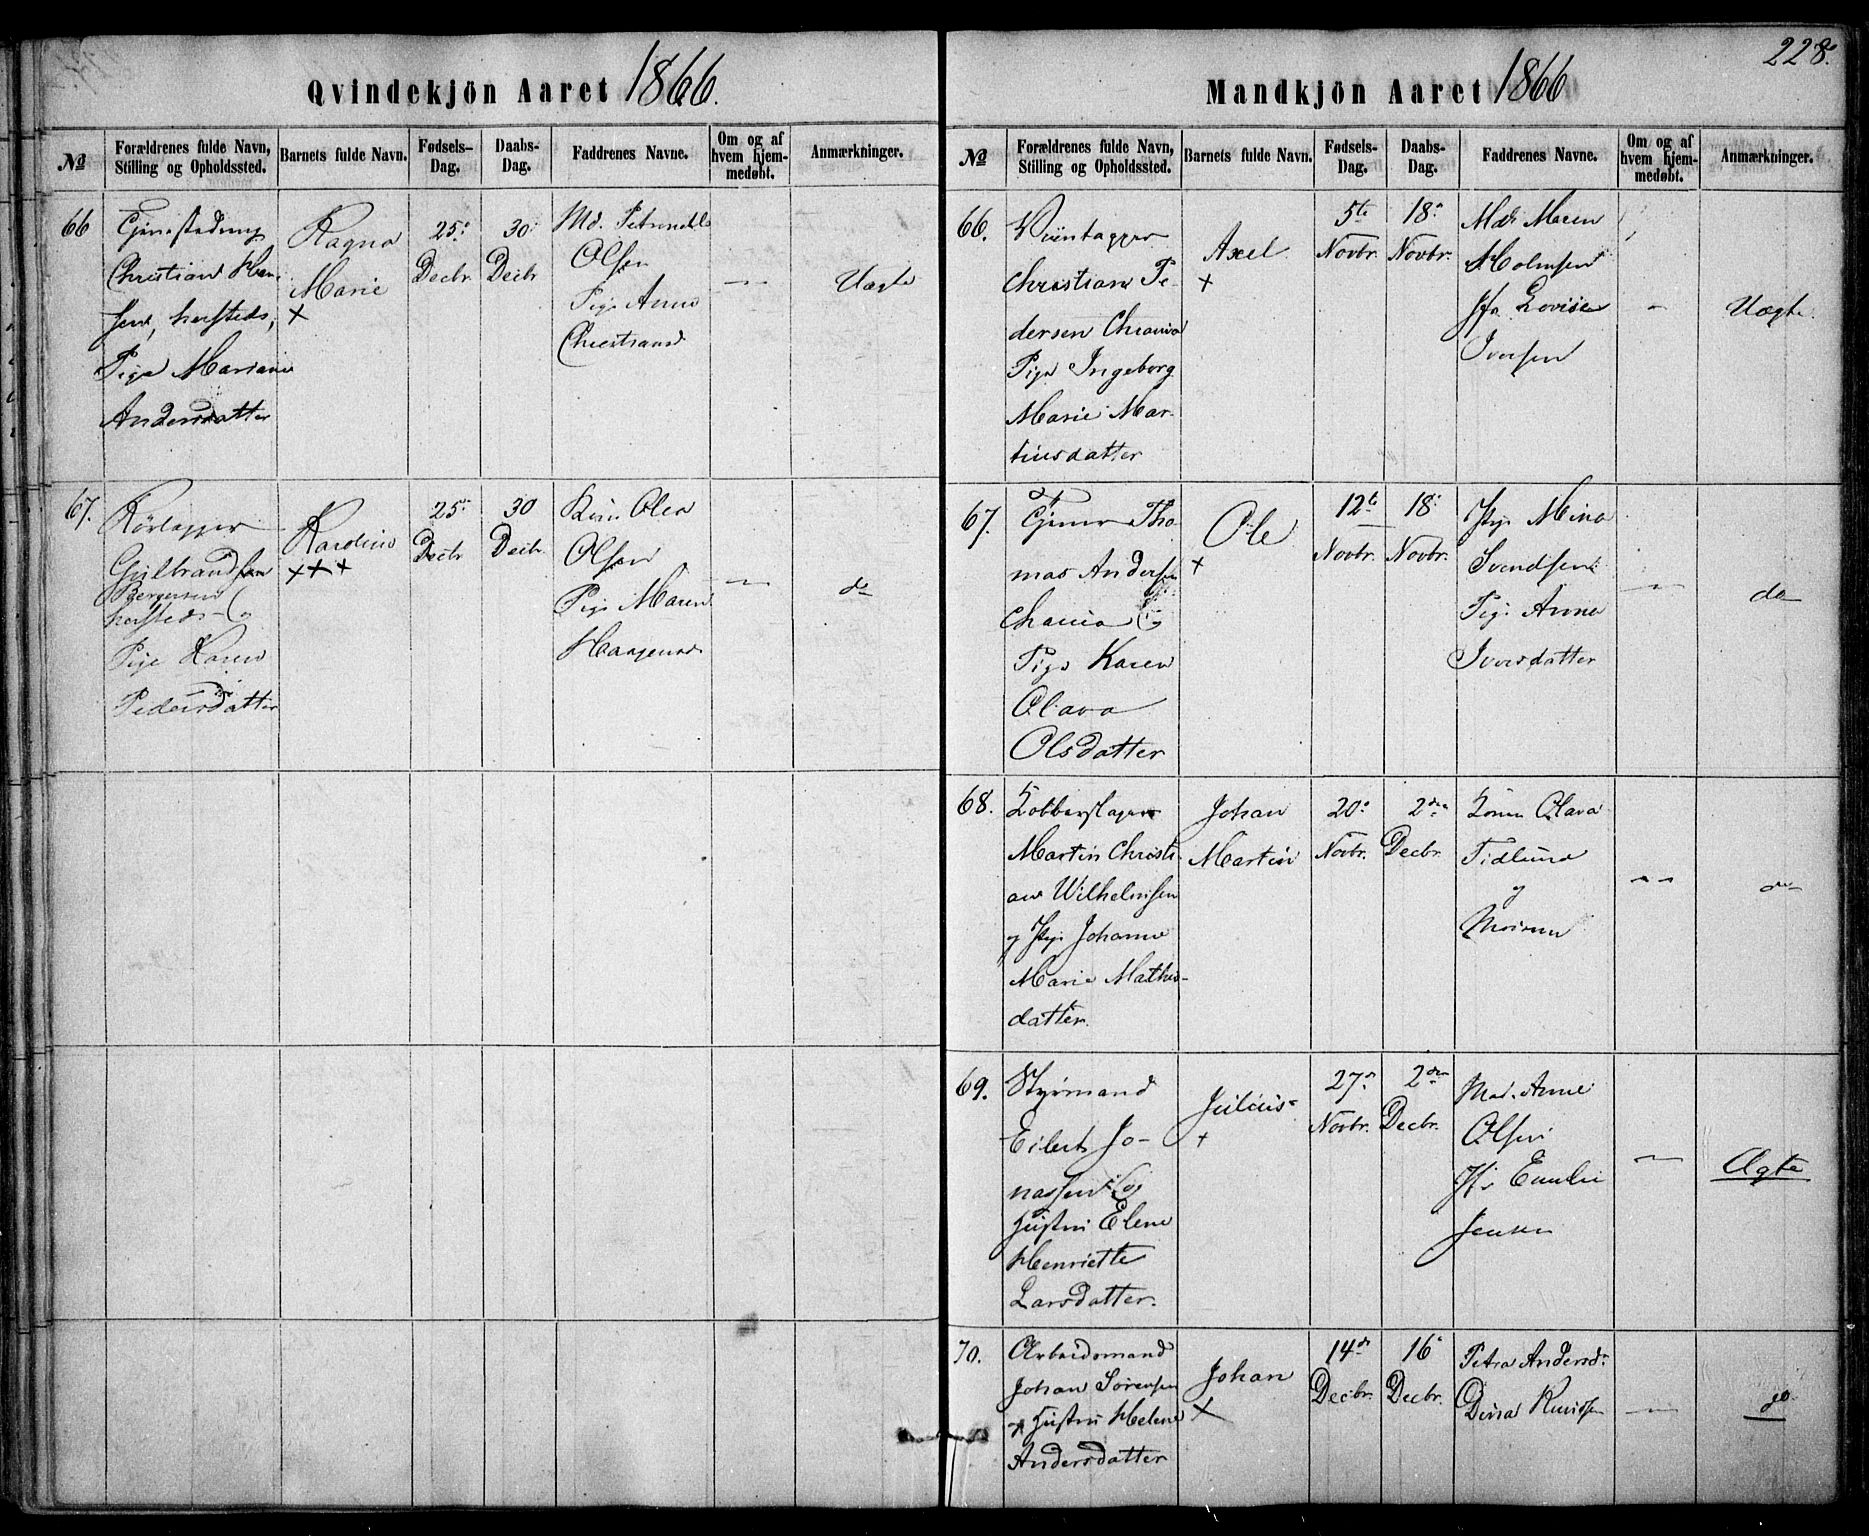 228.
Qvindekjön Aaret 1866.
No
Forældrenes fulde Navn,
Stilling og Opholdssted.
Barnets fulde Navn.
Fødsels-
Dag.
Daabs-
Dag.
Faddrenes Navne.
Om og af
hvem hjem-
medøbt.
Anmærkninger.
66
Christian Han-
sen, hersteds,
Pige Mariane
Andersdatter
Ragna
Marie
+
25
Decbr
30
Decbr
Md. Petronelle
Olsen
Pige Anne
Christians
—
Uægte
67.
Gulbrandsen
Bergersen
hersteds og
Pige Karen
Pedersdatter
Karoline
+++
25
Decbr
30
Decbr.
Olea
Olsen
Pige Maren
Haagens
—
do
Mandkjön Aaret 1866
No
Forældrenes fulde Navn,
Stilling og Opholdssted.
Barnets fulde Navn.
Fødsels-
Dag.
Daabs-
Dag.
Faddrenes Navne.
Om og af
hvem hjem-
medøbt.
Anmærkninger.
66.
Viintapper
Christian Pe-
dersen Chrania
Pige Ingeborg
Marie Mar-
tinsdatter
Axel
+
5te
Novbr.
18
Novbr.
Md. Maren
Holmsen
Jfr Lovise
Iversen
—
Uægte.
67.
Tjener Tho
mas Andersen
Chania og
Pige Karen
Olava
Olsdatter
Ole
+
12te
Novbr.
18
Novbr.
Mina
Svendsen
Pige Anna
Iversdatter
—
do
68.
Kobberslager
Martin Christi
an Wilhelmsen
og Johanne
Marie Mathis-
datter.
Johan
Martin
20
Novbr.
2den
Decbr.
Konen Olava
Tidlund
og
Moren
— —
do
69.
Styrmand
Eilert Jo-
nassen og
Hustru Elene
Henriette
Larsdatter.
Julius
+
27
Novbr.
2den
Decbr.
Mad. Anne
Olsen
Jfr Emilie
Jensen
—
Ægte
70.
Arbeidsmand
Johan Sørensen
og Hustru Helene
Andersdatter
Johan
+
14de
Decbr.
16
Decbr.
Petra Andersd.
Dina Knudsen
—
do.